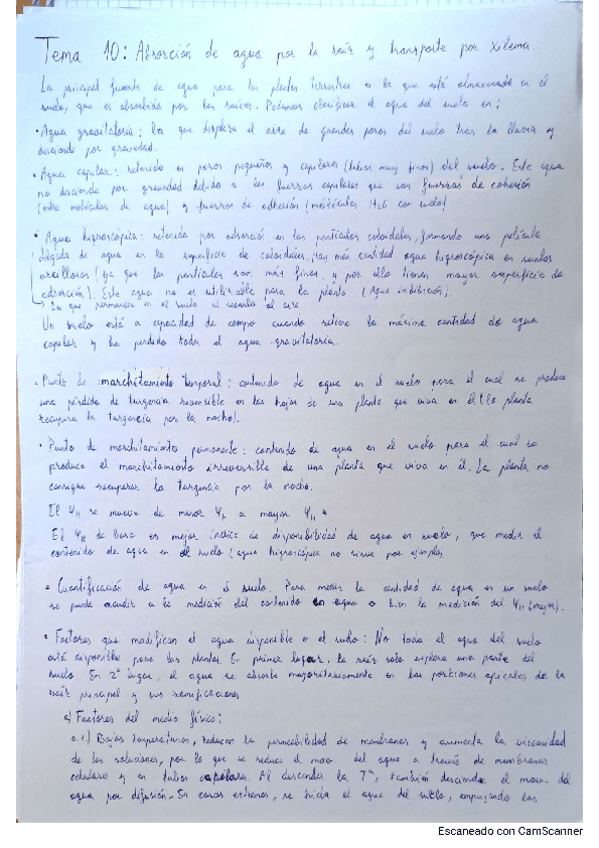 Tema 10: Absorción de agua por la raíz y transporte por Xilema.
La principal fuente de agua para las plantas terrestres es la que está almacenada en el
suelo, que es absorbida por las raíces. Podemos clasificar el agua del suelo en:
· Agua gravitatoria: la que desplaza el aire de grandes poros del suelo tras la lluvia y
desciende por gravedad.
· Agua capilar: retenida en poros pequeños y capilares (tubos muy finos) del suelo. Este agua
no desciende por gravedad debido a las fuerzas capilares que son fuerzas de cohesión
(entre moléculas de agua) y fuerzas de adhesión (moléculas H2O con suelo)
· Agua higroscópica: retenida por adsorción en las partículas coloidales, formando una película
delgada de agua en la superficie de coloidales. Hay más cantidad agua higroscópica en suelos
arcillosos (ya que las partículas son más finas, y por ello tienen mayor superficie de
adsorción). Este agua no es utilizable para la planta. (Agua imbibición).
La que permanece en el suelo al secarlo al aire
Un suelo está a capacidad de campo cuando retiene la máxima cantidad de agua
capilar y ha perdido toda el agua gravitatoria.
· Punto de marchitamiento temporal: contenido de agua en el suelo para el cual se produce
una pérdida de turgencia reversible en las hojas de una planta que viva en él (la planta
recupera la turgencia por la noche).
· Punto de marchitamiento permanente: contenido de agua en el suelo para el cual se
produce el marchitamiento irreversible de una planta que viva en él. La planta no
consigue recuperar la turgencia por la noche.
El ΨH se mueve de menor a mayor ΨH
El ΨH de base es mejor índice de disponibilidad de agua en suelo, que medir el
contenido de agua en el suelo (agua higroscópica no sirve por ejemplo.
· Cuantificación de agua en el suelo. Para medir la cantidad de agua en un suelo
se puede acudir a la medición del contenido en agua o bien la medición del ΨH (mejor).
· Factores que modifican el agua disponible en el suelo: No toda el agua del suelo
está disponible para las plantas. En primer lugar, la raíz solo explora una parte del
suelo. En 2º lugar, el agua se absorbe mayoritariamente en las posiciones apicales de la
raíz principal y sus ramificaciones
a) Factores del medio físico:
a.1) Bajas temperaturas, reducen la permeabilidad de membranas y aumenta la viscosidad
de las soluciones, por lo que se reduce el mov. del agua a través de membranas
celulares y en tubos capilares. Al descender la Tª, también desciende el mov. del
agua por difusión. En casos extremos, se hiela el agua del suelo, empujando las
Escaneado con CamScanner